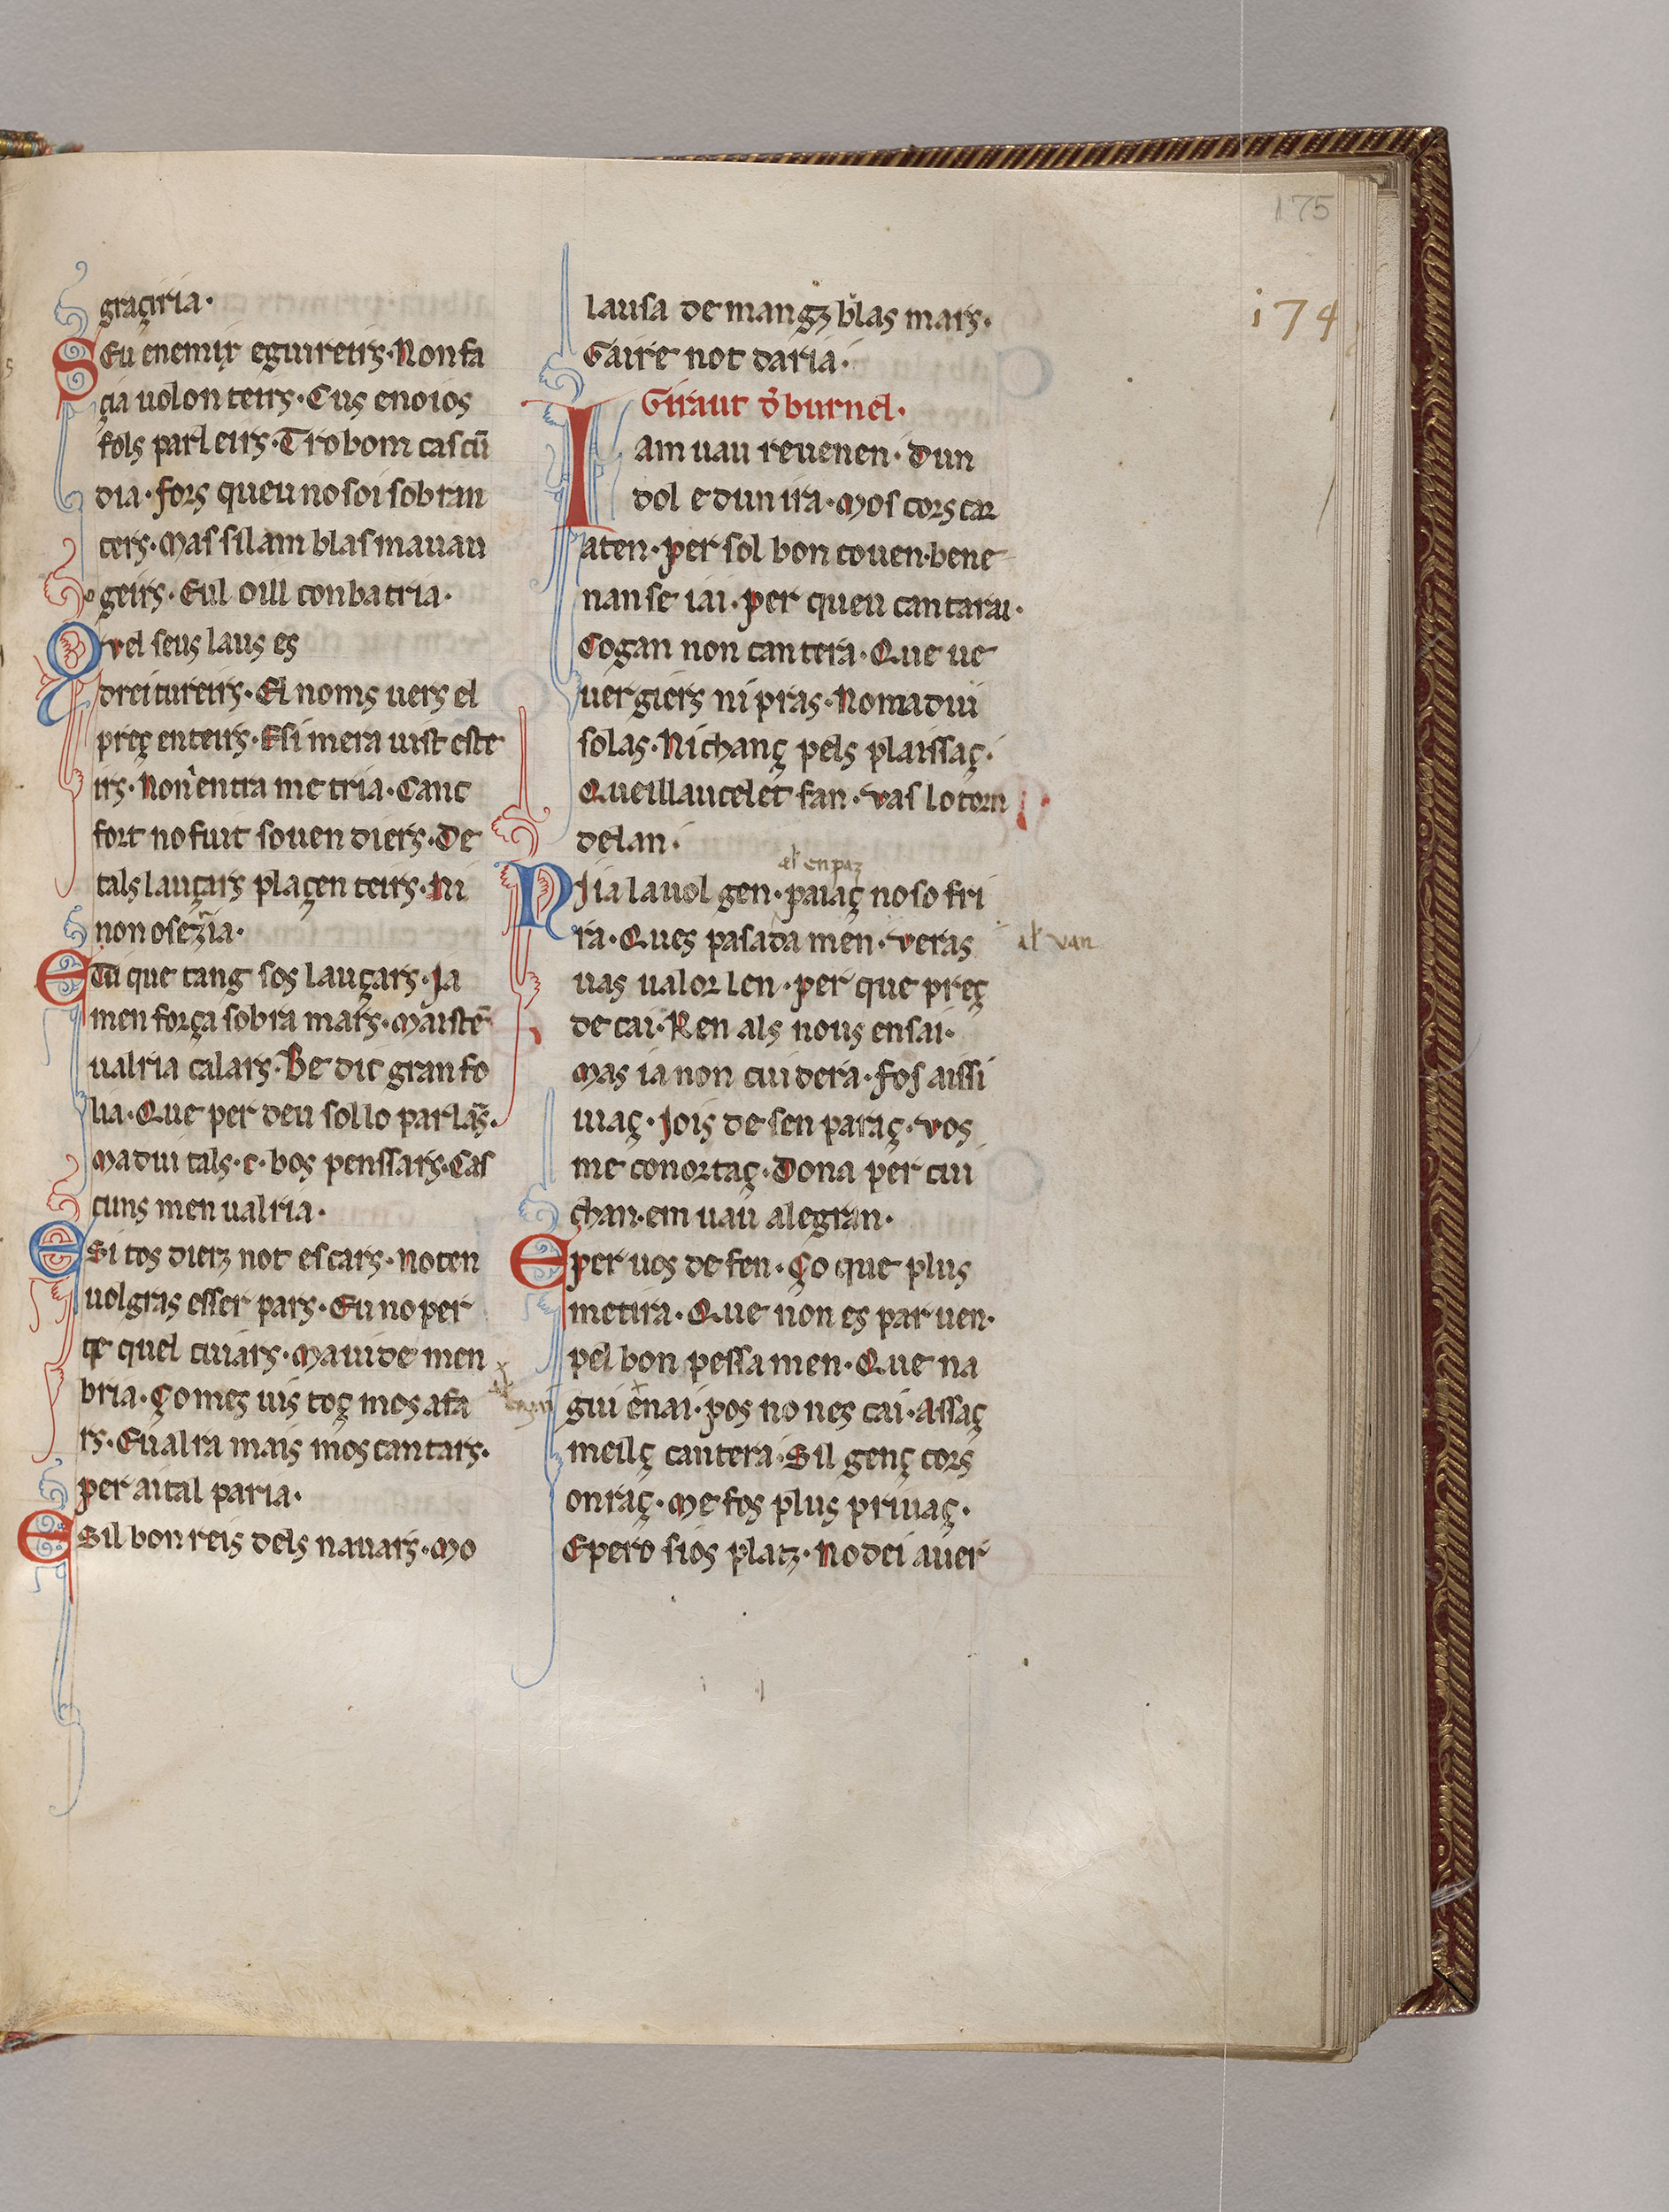 175
i74
graçiria·
SEu enemiç eguireirs·Non fa
çia uolonteirs·Cus enoios
fols parleirs·Trobom cascũ
dia·fors queu no soi sobran
cers·Mas silam blasmauau
geirs·Eul oill conbatria·
Qvel seus laus es
dreitureirs·El noms uers el
preç enteirs·Esi mera uist este
irs·Non entra me tria·Canc
fort no fuit souendiers·De
tals lauçairs plaçenteirs·Ni
non osezia·
ETu que tang sos lauçars·Ja
men força sobra mars·Mauste
ualria calars·Be dic gran fo
lia·Que per deu sol lo parlars·
Madui tals·e·bos penssars·Cas
cuns men ualria·
ESi tos dierz not escars·Noten
uolgras esser pars·Eu no per
te quel cuiars·Mauide men
bria·Ço mes uis toç mos afa
rs·Eualra mais mos cantars·
per aital paria·
ESil bon reis dels nauars·Mo
lausa de mangz blasmars·
Gaire not daria·
Giraut d̄ burnel·
IAm uau reuenen·Dun
dol e dun ira·Mos cors car
aten·per sol bon couen·bene
nanse iai·per queu cantarai·
Cogan non cantera·Que ue
uergiers ni pras·Nomadui
solas·Ni chanç pels plaissaç·
Queill aucelet fan·vas lo torn
delan·
al' en paz
NJia lauol gen·paiaç no sofri
ra·Ques pasada men·veras
al' van
uas ualor len·per que preç
decai·Ren als nous ensai·
Mas ia non cuidera·fos aissi
uiaç·Jois desen paraç·vos
me conortaç·Dona per cui
chan·em uau alegran·
Eper uos defen·Ço que plus
metira·Que non es paruen·
pel bon pessamen·Que na
gui enai·pos no nes cai·Assaç
meilç cantera·Sil genç cors
onraç·Me fos plus priuaç·
Epero sios platz·No dei auer